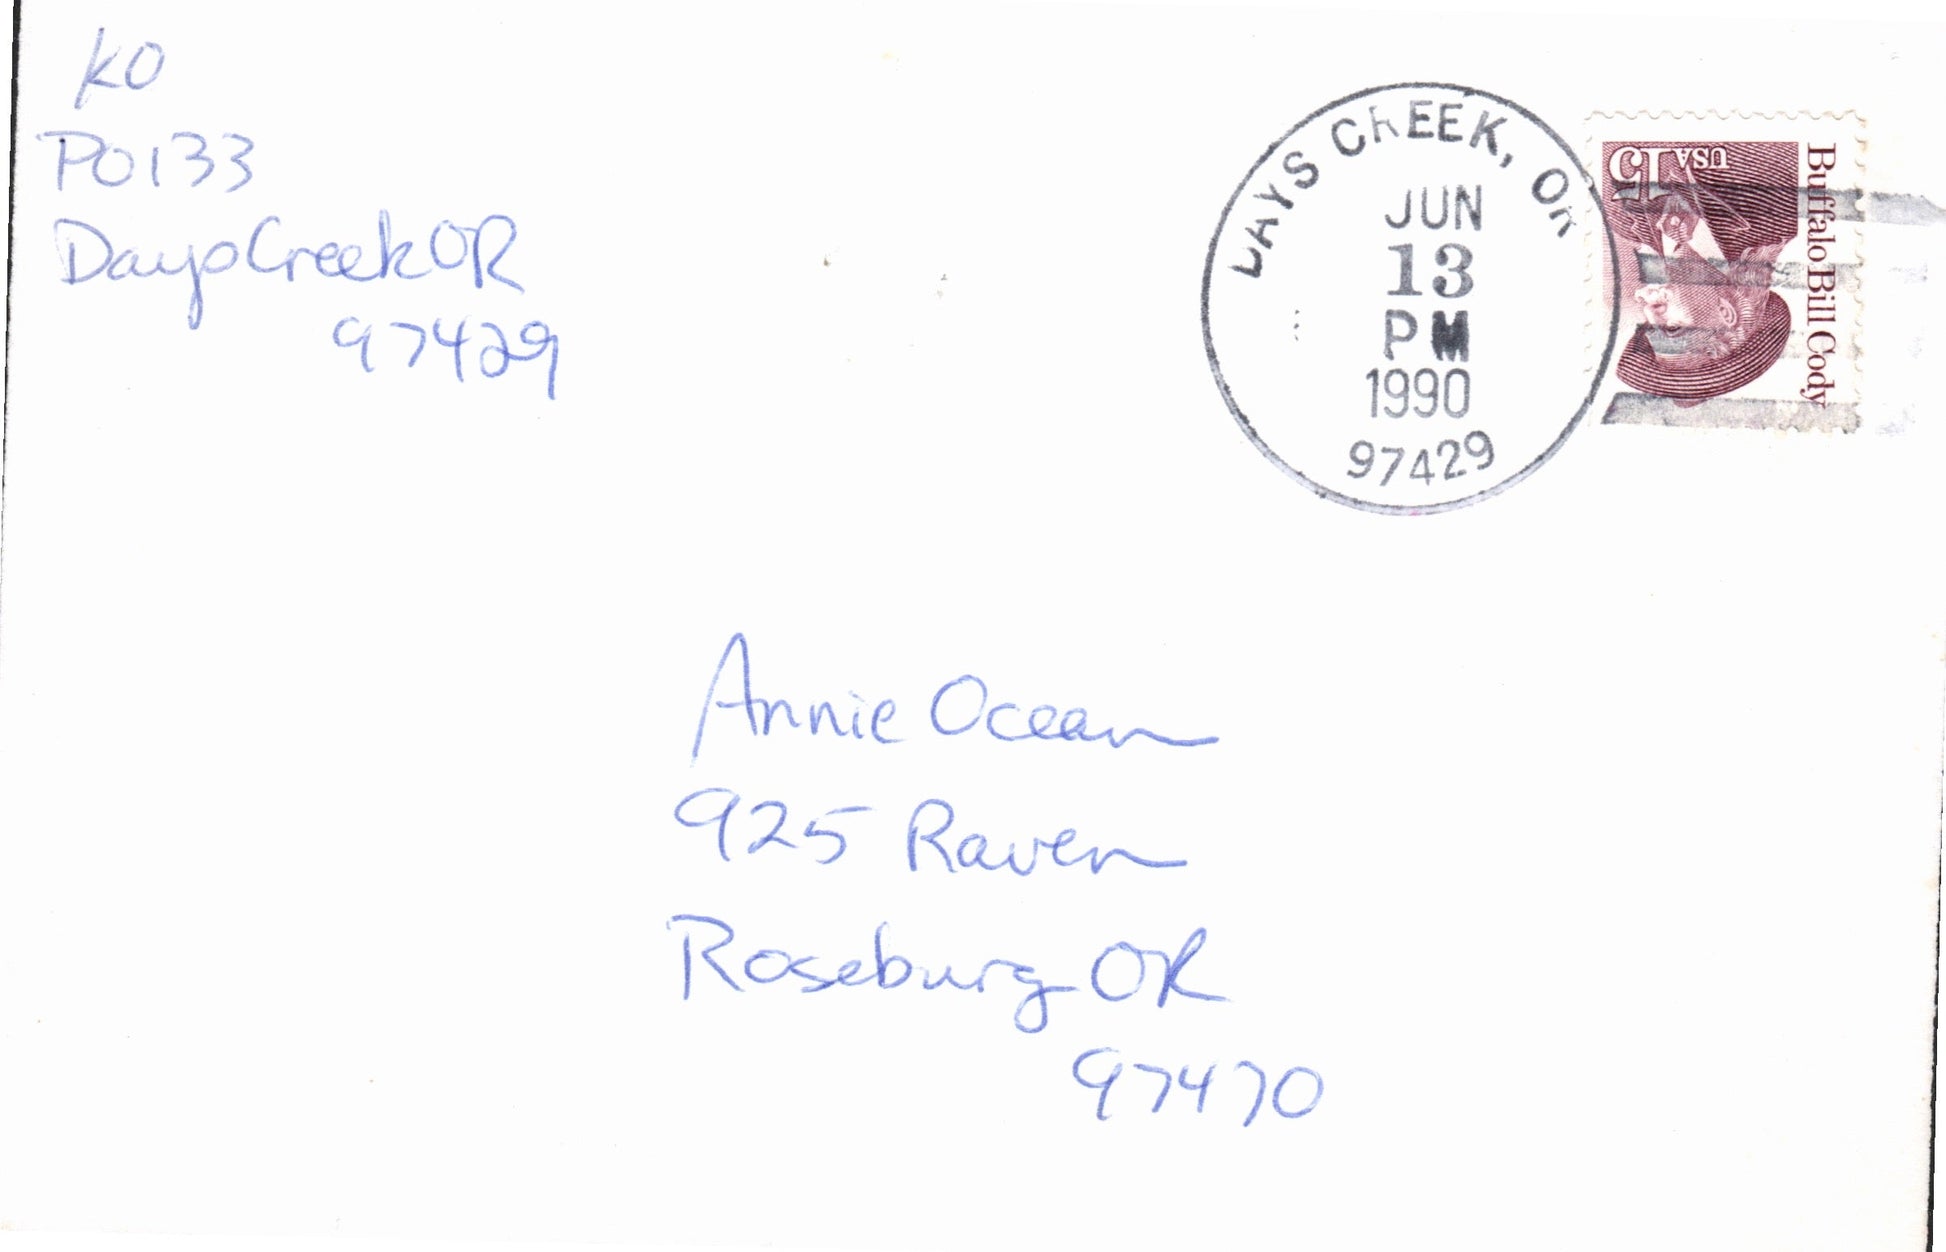 KO
PO 133
Days Creek OR
97429
DAYS CREEK, OR
JUN
13
PM
1990
97429
15 USA
Buffalo Bill Cody
Annie Ocean
925 Raven
Roseburg OR
97470